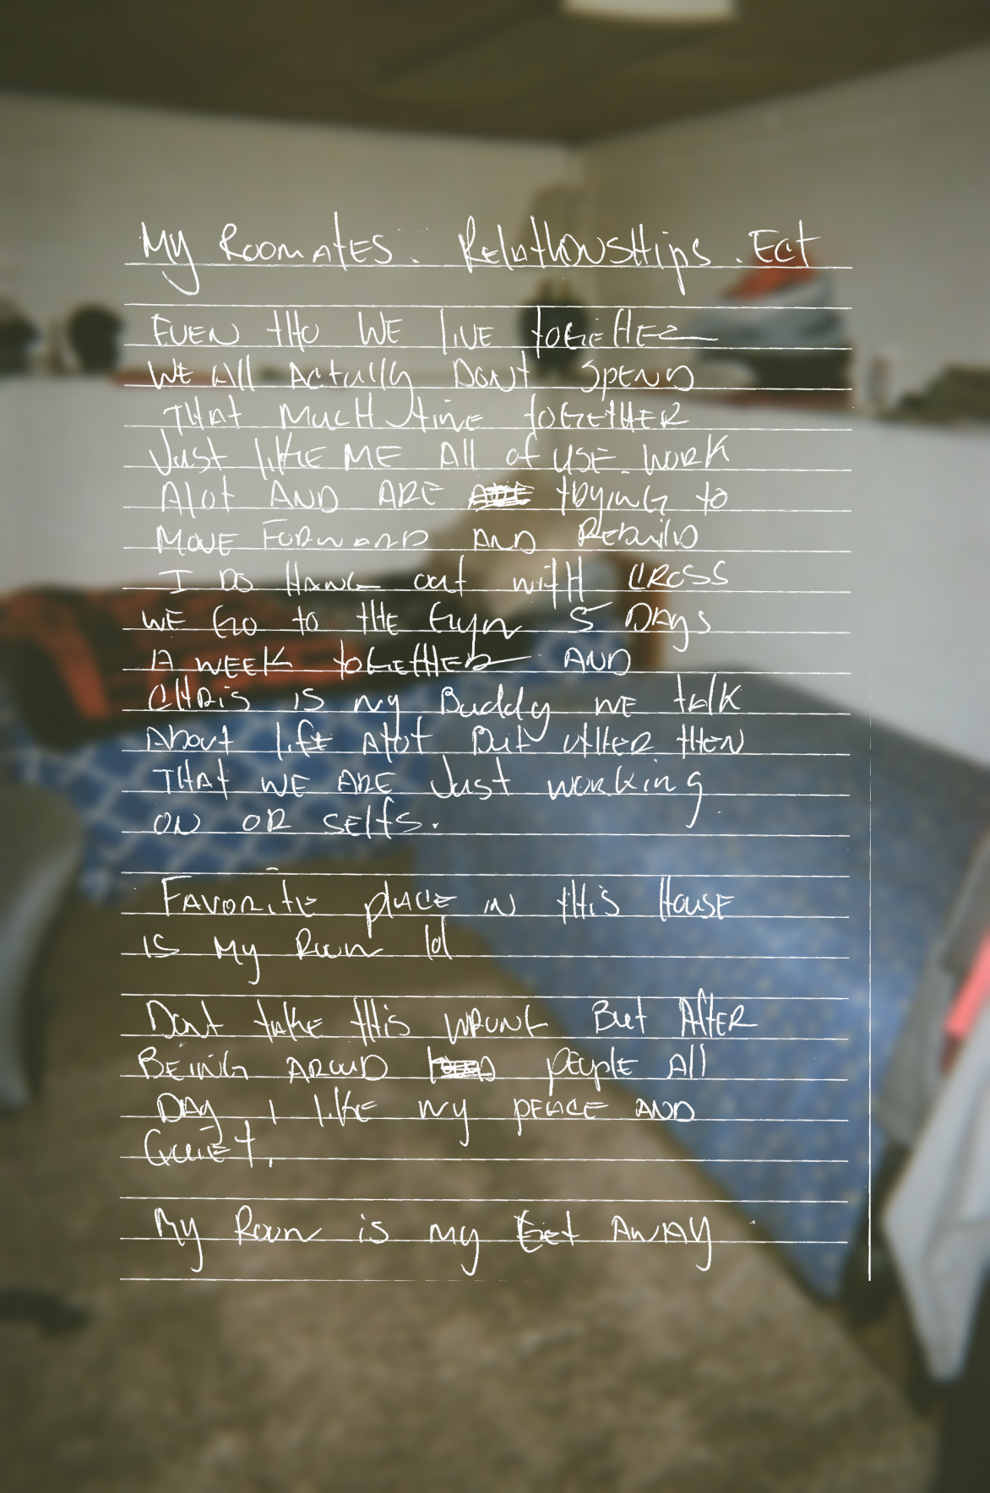 My Roomates. Relationships. Ect
EVEN tHO WE liVE togEtHER
WE All Actually Dont SPEND
THAt Much time togETHER
Just likE ME All of USE WORK
Alot AND ARE tryiNG to
MOVE FORWARD AND REbuilD
I DO HANG out witH CROSS
WE Go to tHE Gym 5 DAys
A WEEK togEtHER AND
CHRis is my Buddy WE talk
About lifE Alot But otHER tHEN
THAt WE ARE Just working
ON OR SElfs.
FAVORitE plACE iN tHis HousE
is My Room lol
Dont takE tHis WRONG But AftER
BEiNG AROUND pEoplE All
DAy I likE my pEACE AND
QuiEt.
My Room is my GEt AWAY